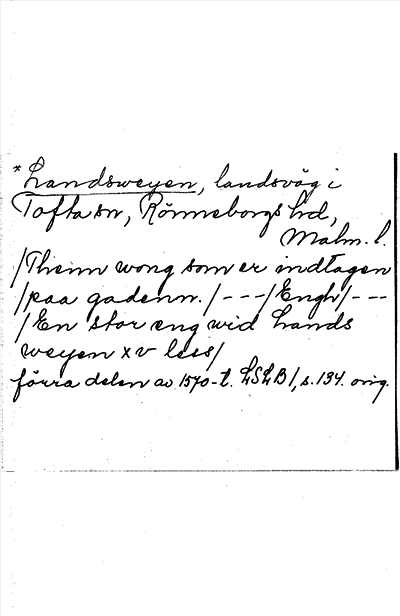 *Landsweyen, landsväg i
Tofta sn, Rönnebergs hd,
Malm. l.
/Thenn wong som er indtagen
/paa gadenn./---/Engh/---
/En stor eng wid Lands
weyen xv less/
förra delen av 1570-t. LSLB 1, s. 134. orig.